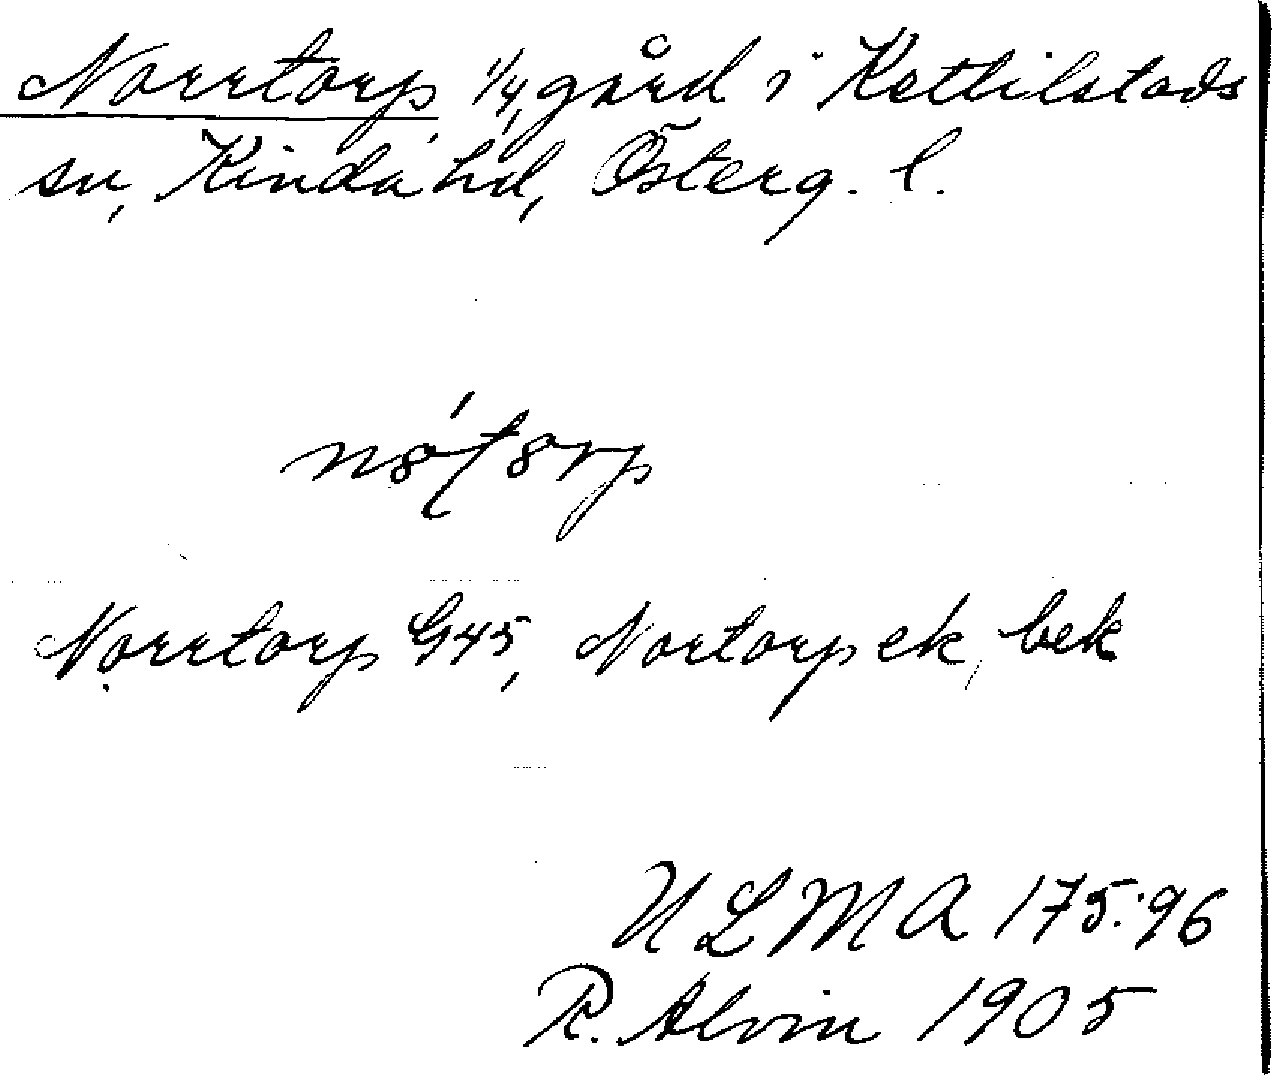 Norrtorp, 1/4 gård i Kettilstads
sn, Kinda hd, Österg. l.
Norrtorp G45, Nortorp ek, bek
ULMA 175:96
R. Alvin 1905